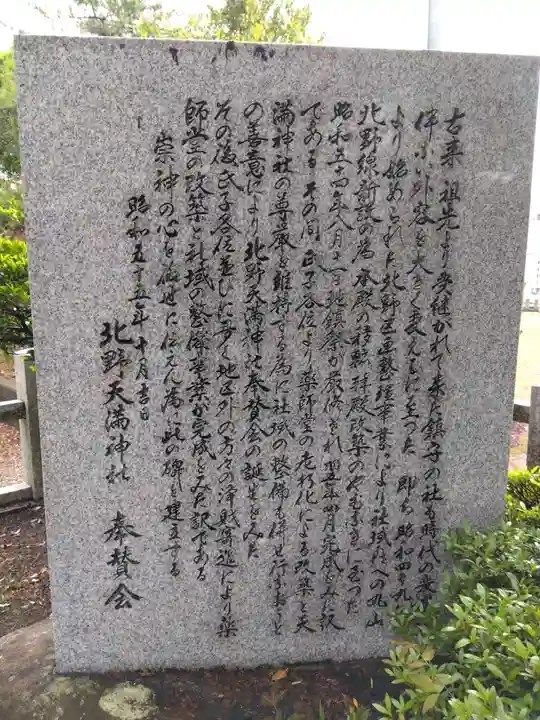 古来 祖先より受継がれて来た鎮守の社も時代の
伴ない外容を大きく変えるに至った 即ち 昭和四
より始められた北野区画整理事業により社域
北野線新設の為 本殿の移転 拝殿改築のやむなきに至った
昭和五十四年八月 地鎮祭が厳修され 五年四月完成をみた訳
である その間 氏子各位より薬師堂の老朽化による改築と天
満神社の尊厳を維持する為に社域の整備も併せ行
の善意により 北野天満神社奉賛会の誕生をみた
その後 氏子各位並びに多く地区外の方々の浄財寄進により薬
師堂の改築と社域の整備事業が完成をみた訳である
崇神の心を後世に伝えん為 此の碑を建立する
昭和五十五年十月吉日
北野天満神社 奉賛会